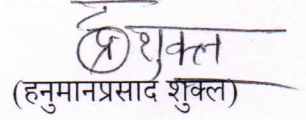 प्र शुक्ल
(हनुमानप्रसाद शुक्ल)